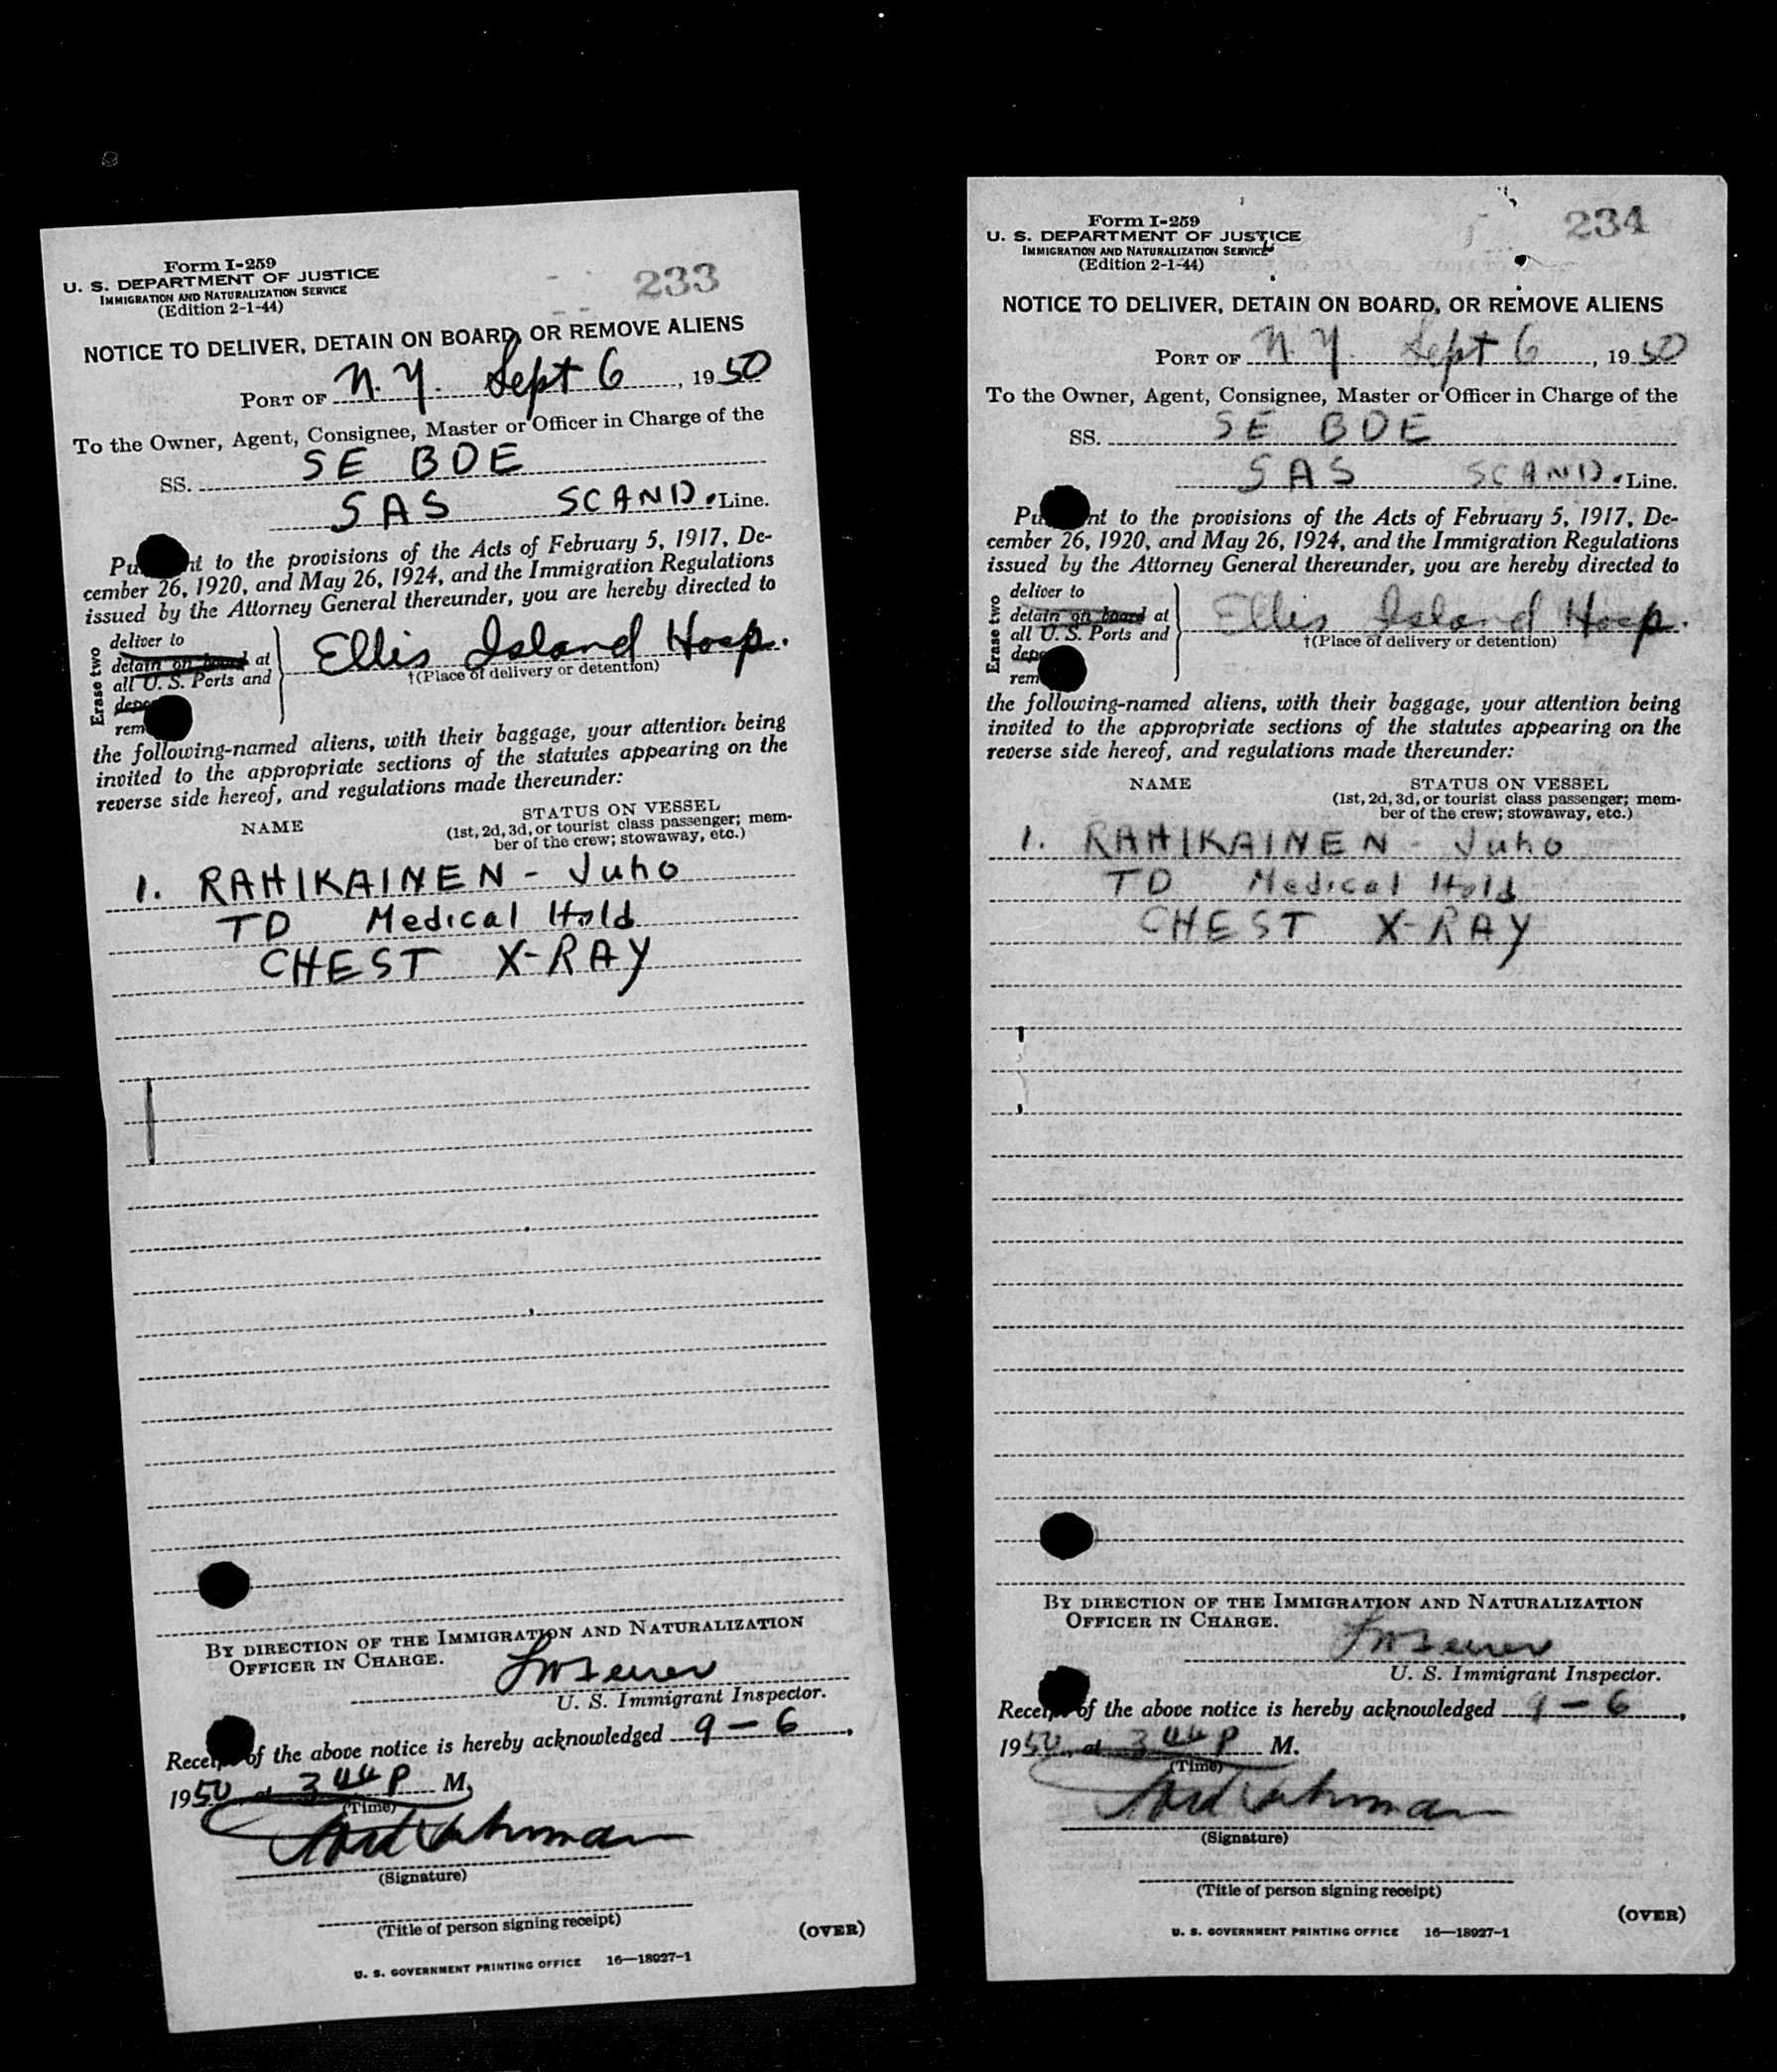 Form I-259
U. S. DEPARTMENT OF JUSTICE
IMMIGRATION AND NATURALIZATION SERVICE
(Edition 2-1-44)
233
NOTICE TO DELIVER, DETAIN ON BOARD, OR REMOVE ALIENS
PORT OF N.Y. Sept 6, 1950
To the Owner, Agent, Consignee, Master or Officer in Charge of the
SS. SE BDE
SAS SCAND. Line.
to the provisions of the Acts of February 5, 1917, De-
cember 26, 1920, and May 26, 1924, and the Immigration Regulations
issued by the Attorney General thereunder, you are hereby directed to
Erase two
deliver to
detain on board at
all U. S. Ports and
Ellis Island Hosp.
†(Place of delivery or detention)
the following-named aliens, with their baggage, your attention being
invited to the appropriate sections of the statutes appearing on the
reverse side hereof, and regulations made thereunder:
NAME
STATUS ON VESSEL
(1st, 2d, 3d, or tourist class passenger; mem-
ber of the crew; stowaway, etc.)
1. RAHIKAINEN - Juho
TD Medical Hold
CHEST X-RAY
BY DIRECTION OF THE IMMIGRATION AND NATURALIZATION
OFFICER IN CHARGE.
U. S. Immigrant Inspector.
of the above notice is hereby acknowledged 9-6,
1950, at 3 44 P M.
(Time)
(Signature)
(Title of person signing receipt)
(OVER)
U. S. GOVERNMENT PRINTING OFFICE 16—18927-1
Form I-259
U. S. DEPARTMENT OF JUSTICE
IMMIGRATION AND NATURALIZATION SERVICE
(Edition 2-1-44)
234
NOTICE TO DELIVER, DETAIN ON BOARD, OR REMOVE ALIENS
PORT OF N.Y. Sept 6, 1950
To the Owner, Agent, Consignee, Master or Officer in Charge of the
SS. SE BDE
SAS SCAND. Line.
to the provisions of the Acts of February 5, 1917, De-
cember 26, 1920, and May 26, 1924, and the Immigration Regulations
issued by the Attorney General thereunder, you are hereby directed to
Erase two
deliver to
detain on board at
all U. S. Ports and
Ellis Island Hosp.
†(Place of delivery or detention)
the following-named aliens, with their baggage, your attention being
invited to the appropriate sections of the statutes appearing on the
reverse side hereof, and regulations made thereunder:
NAME
STATUS ON VESSEL
(1st, 2d, 3d, or tourist class passenger; mem-
ber of the crew; stowaway, etc.)
1. RAHIKAINEN - Juho
TD Medical Hold
CHEST X-RAY
BY DIRECTION OF THE IMMIGRATION AND NATURALIZATION
OFFICER IN CHARGE.
U. S. Immigrant Inspector.
of the above notice is hereby acknowledged 9-6,
1950, at 3 44 P M.
(Time)
(Signature)
(Title of person signing receipt)
(OVER)
U. S. GOVERNMENT PRINTING OFFICE 16—18927-1